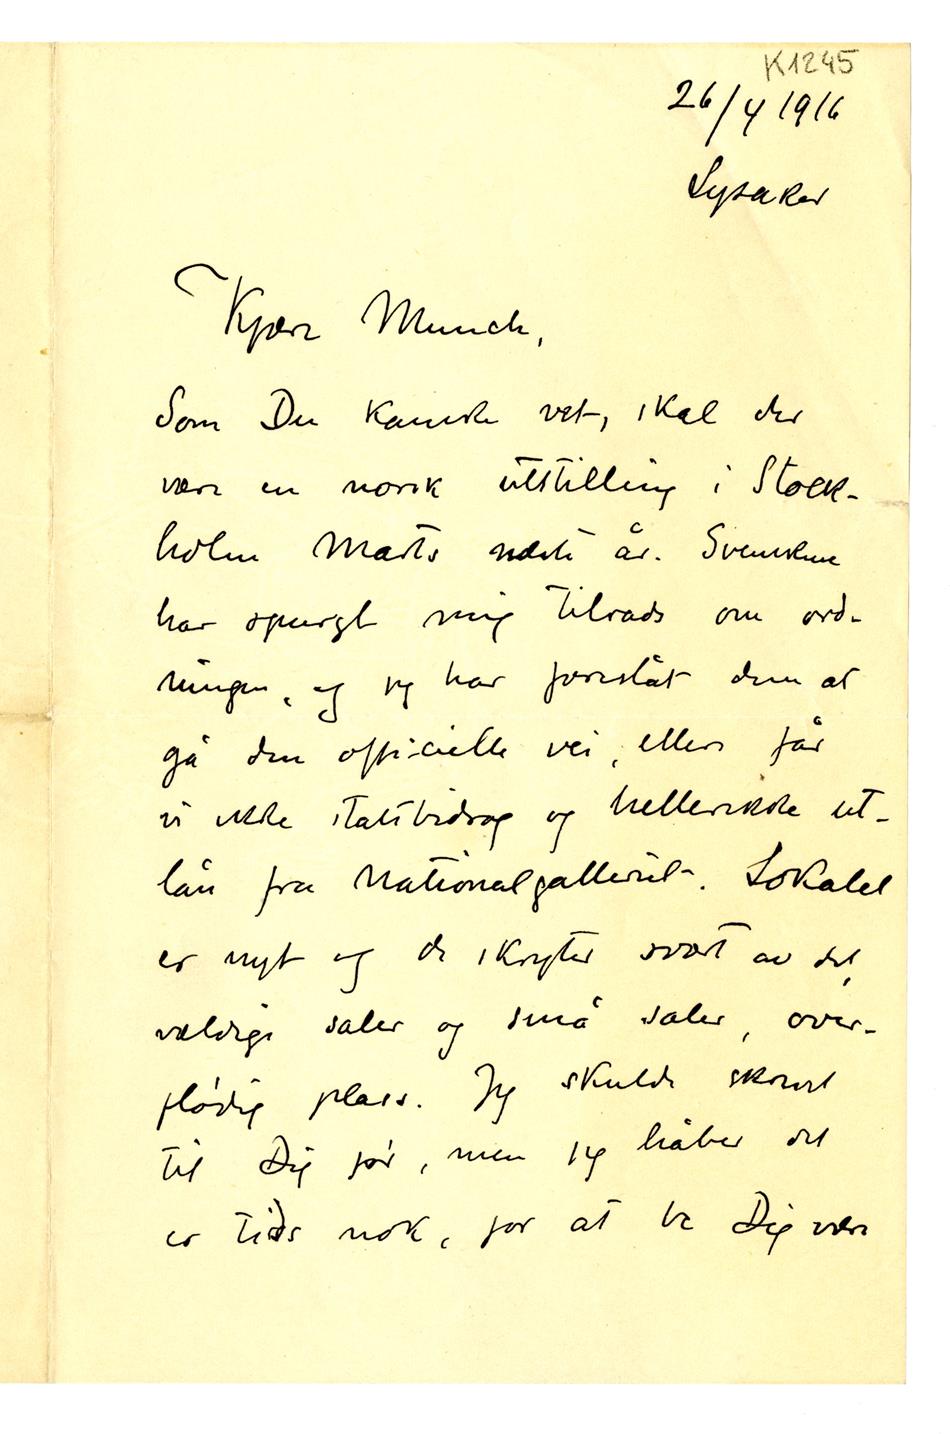 K1245
26/4 1916
Lysaker
Kjære Munch,
Som Du kanske vet, skal der
være en norsk utstilling i Stock-
holm Marts næste år. Svenskene
har spurgt mig tilråds om ord-
ningen, og jeg har foreslåt dem at
gå den officielle vei, ellers får
vi ikke statsbidrag og heller ikke ut-
lån fra Nationalgalleriet. Lokalet
er nyt og de skryter svært av det,
vældige saler og små saler, over-
flødig plass. Jeg skulde skrevet
til Dig før, men jeg håber det
er tids nok, for at be Dig være